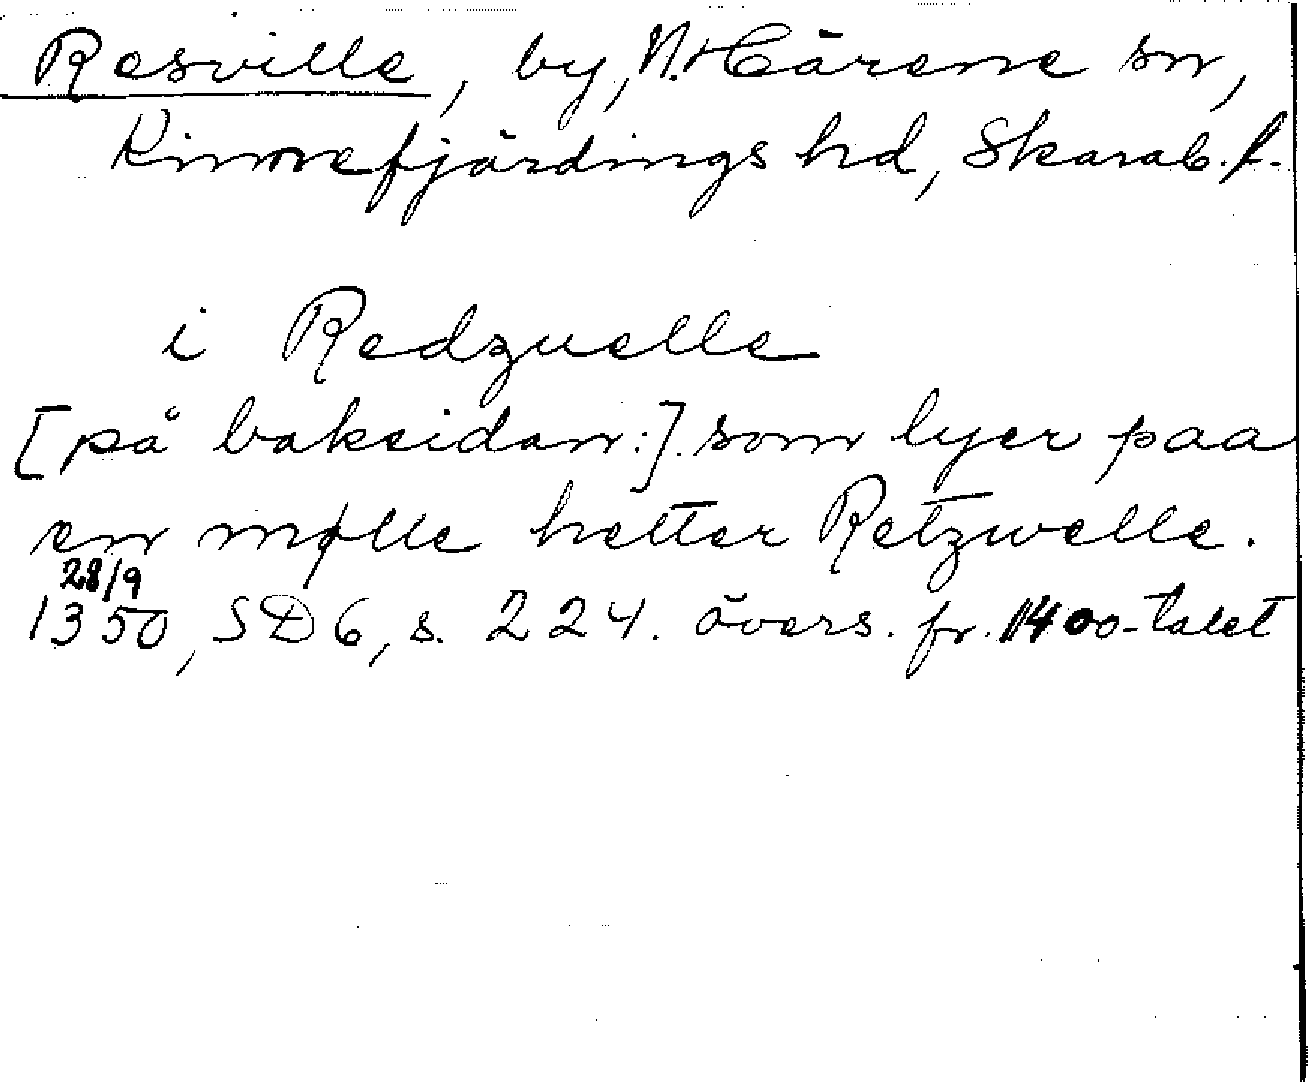 Resville, by, N. Härene sn,
Kinnefjärdings hd, Skarab. l.
i Redzuelle
[på baksidan:] som lyer paa
en mølle hetter Retzwelle.
28/9
1350, SD 6, s. 224. övers. fr. 1400-talet